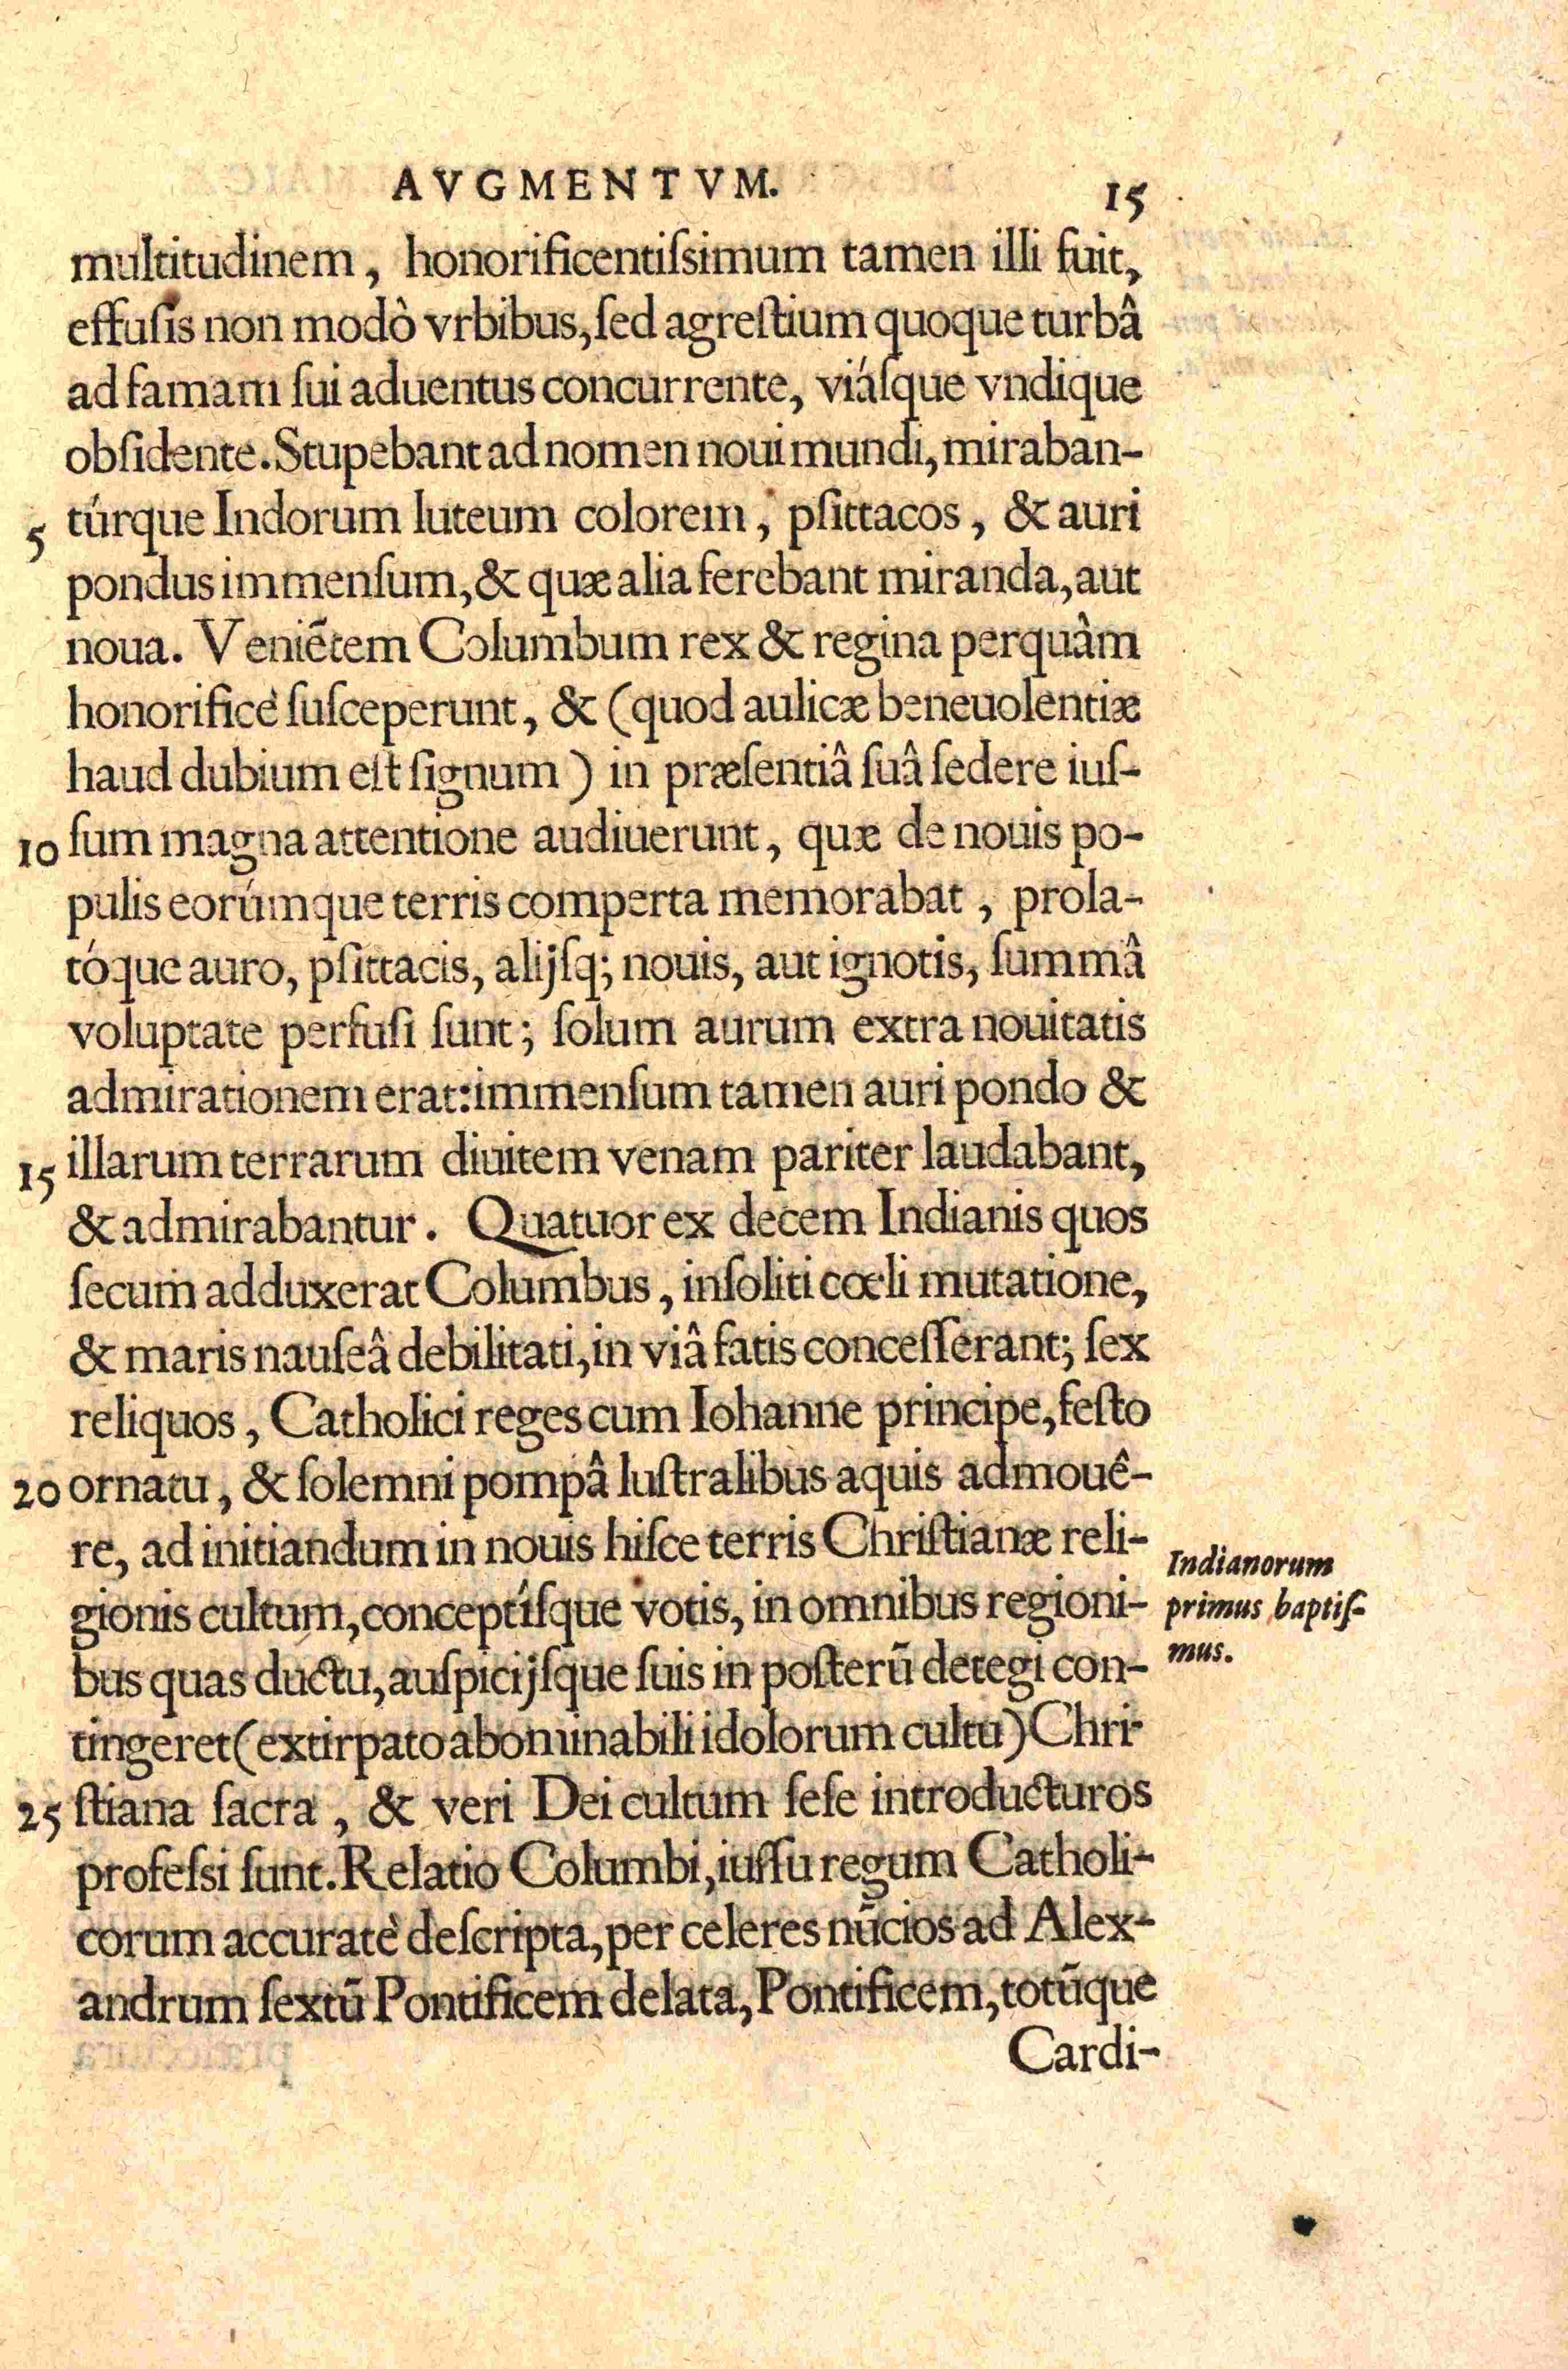 AVGMENTVM. 15
multitudinem, honorificentiſsimum tamen illi fuit,
effuſis non modò vrbibus, ſed agreſtium quoque turbâ
ad famam ſui aduentus concurrente, viáſque vndique
obſidente. Stupebant ad nomen noui mundi, miraban-
5 túrque Indorum luteum colorem, pſittacos, & auri
pondus immenſum, & quæ alia ferebant miranda, aut
noua. Veniẽtem Columbum rex & regina perquàm
honorificè ſuſceperunt, & (quod aulicæ beneuolentiæ
haud dubium eſt ſignum) in præſentiâ ſuâ ſedere iuſ-
10 ſum magna attentione audiuerunt, quæ de nouis po-
pulis eorúmque terris comperta memorabat, prola-
tóque auro, pſittacis, alijſq; nouis, aut ignotis, ſummâ
voluptate perfuſi ſunt; ſolum aurum extra nouitatis
admirationem erat: immenſum tamen auri pondo &
15 illarum terrarum diuitem venam pariter laudabant,
& admirabantur. Quatuor ex decem Indianis quos
ſecum adduxerat Columbus, inſoliti cœli mutatione,
& maris nauſeâ debilitati, in viâ fatis conceſſerant; ſex
reliquos, Catholici reges cum Iohanne principe, feſto
20 ornatu, & ſolemni pompâ luſtralibus aquis admouê-
re, ad initiandum in nouis hiſce terris Chriſtianæ reli-
gionis cultum, conceptíſque votis, in omnibus regioni-
bus quas ductu, auſpicijſque ſuis in poſterũ detegi con-
tingeret (extirpato abominabili idolorum cultu) Chri-
25 ſtiana ſacra, & veri Dei cultum ſeſe introducturos
profeſsi ſunt. Relatio Columbi, iuſſu regum Catholi-
corum accuratè deſcripta, per celeres nũcios ad Alex-
andrum ſextũ Pontificem delata, Pontificem, totũque
Cardi-
Indianorum
primus baptiſ-
mus.